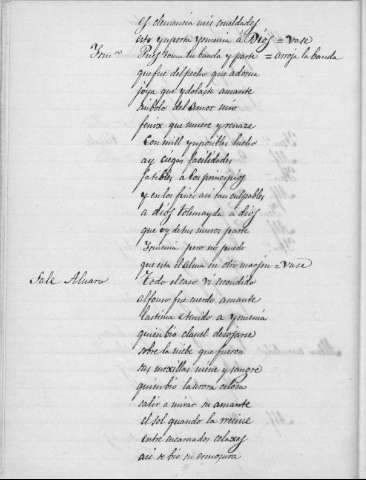 es clemencia mis crueldades
esto ymporta ysmenia à Dios = vase
Ysm.ª Pues toma tu banda y parte = arroja la banda
que fue del pecho que adorna
joya que ydolatre amante
simbolo del amor mio
fenix que muere y renaze
Con mill ymposibles lucho
ay ciegas facilidades
fazibles à los principios
y en los fines asi tan culpables
a dios tolemayda a dios
que oy de tus muros parte
Ysmenia pero no puedo
que esta el alma en otra marjen = vase
Sale Alvaro Todo el caso vi escondido
alfonso fue cuerdo amante
lastima e tenido a ysmenia
quien bio clavel desojarse
sobre la niebe que fueron
sus mexillas nieve y sangre
quien bio la aurora celosa
salir a mirar su amante
el sol quando la recive
entre encarnados celaxes
asi se bio su ermosura